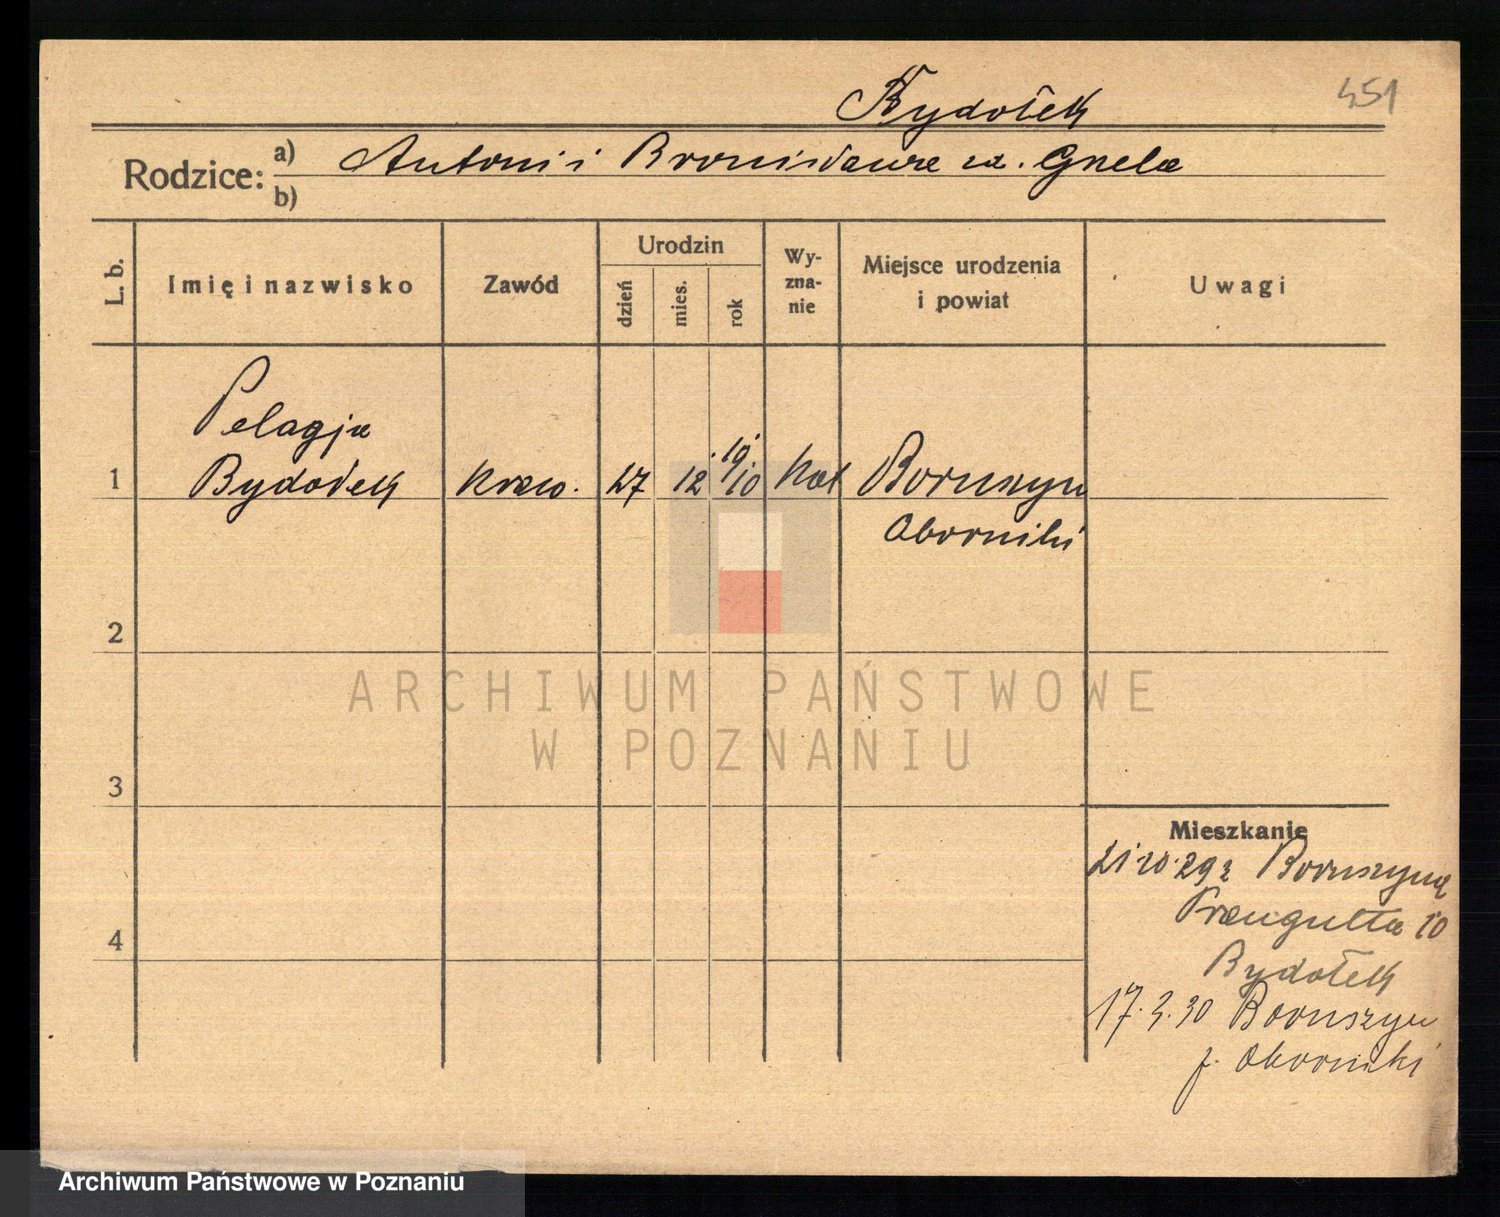 Bydołek
451
Rodzice: a) Antoni i Bronisława z d. Gnela
b)
L. b.
Imię i nazwisko
Zawód
Urodzin
dzień
mies.
rok
Wy-
zna-
nie
Miejsce urodzenia
i powiat
Uwagi
1
Pelagja
Bydołek
kraw.
27
12
19/10
kat
Boruszyn
Oborniki
2
3
4
Mieszkanie
21.10.29 z Boruszyna
10
Bydołek
17.3.30 Boruszyn
p. Oborniki
ARCHIWUM PAŃSTWOWE
W POZNANIU
Archiwum Państwowe w Poznaniu